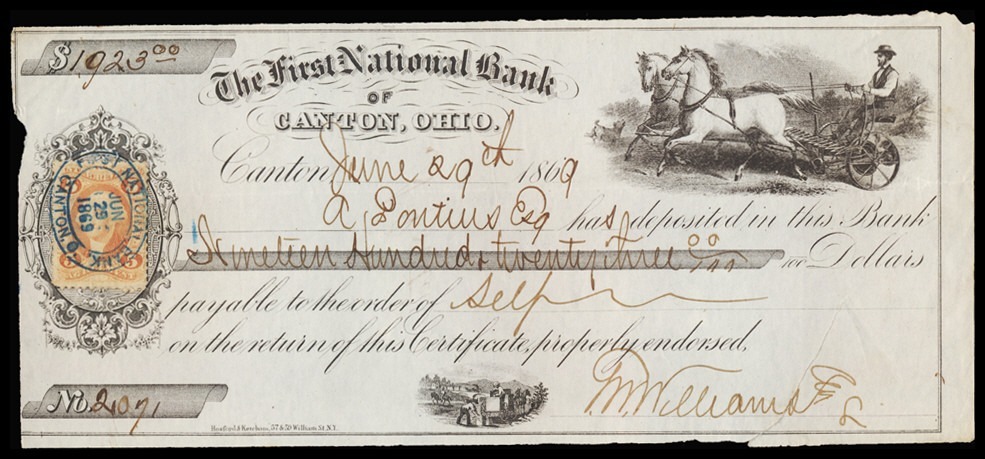 $1923 00
The First National Bank
OF
CANTON, OHIO.
Canton June 29th 1869
A Pontius Esq has deposited in this Bank
Nineteen Hundred & twenty three 00/100 100 Dollars
payable to the order of Self
on the return of this Certificate, properly endorsed,
No. 2071
FIRST NATIONAL BANK
JUN
29
1869
CANTON, O.
5
5
57 & 59 William St. N.Y.
Williams